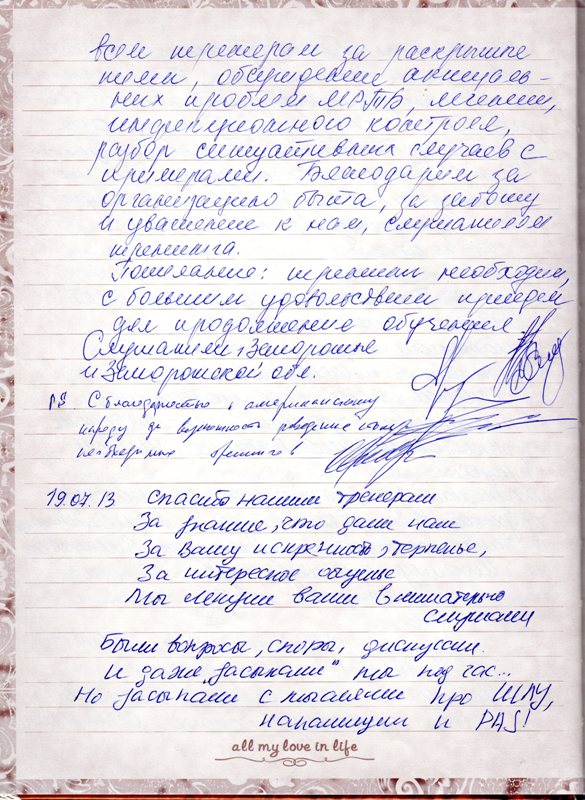 всем тренерам за раскрытие
темы, обсуждение актуаль-
них проблем МРТБ, лечения,
инфекционного контроля,
разбор ситуативных случаев с
примерами. Благодарим за
организацию быта, за заботу
и уважение к нам, слушателям
тренинга.
Пожелание: тренинги необходимы,
с большим удовольствием приедем
для продолжения обучения
Слушатели г. Запорожье
и Запорожской обл.
P.S. С благодарностью к американскому
народу за возможность проведения
необходимых тренингов
19.07.13 Спасибо нашим тренерам
За знание, что дали нам
За Вашу искренность, терпенье,
За интересное общенье
Мы лекции ваши внимательно
слушали
Были вопросы, споры, дискуссии.
И даже „засыпали" мы под час...
Но засыпали с мыслями про ШЛУ,
напалищии и PAS!
all my love in life